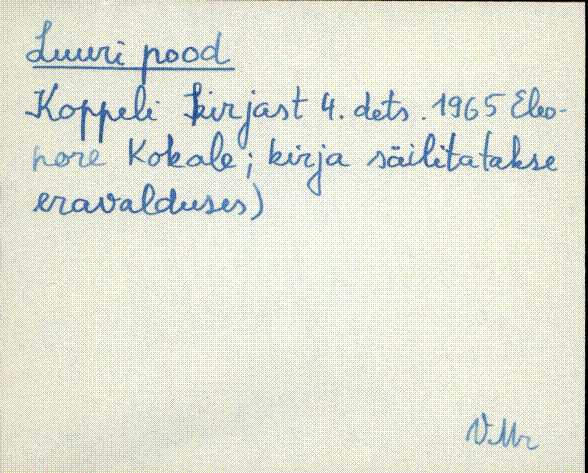 Luuri pood
Koppeli kirjast 4. dets. 1965 Eleo-
nore Kokale; kirja säilitatakse
eravalduses)
VMr